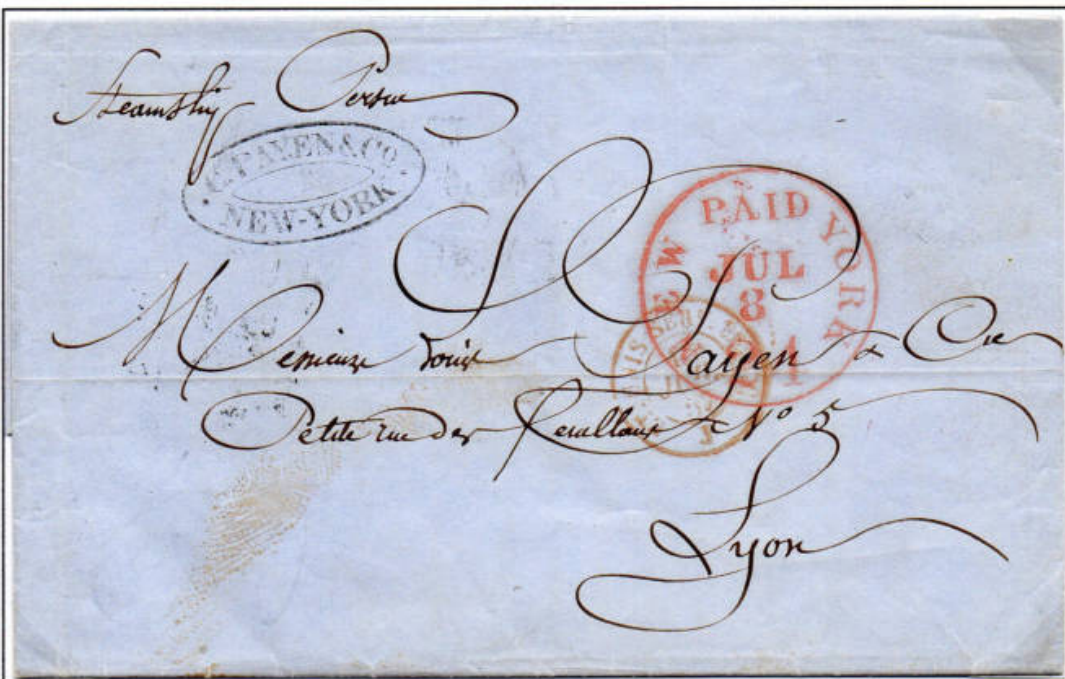 Steamship Persia
C. PAYEN & CO.
NEW-YORK
NEW PAID YORK
JUL
8
24
Messieurs Louis Payen & Cie
Petite rue des Feuillans No 5
Lyon